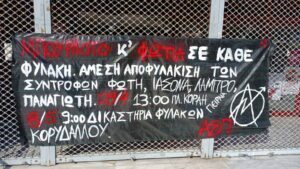 Κ' ΦΩΤΙΑ ΣΕ ΚΑΘΕ
ΦΥΛΑΚΗ. ΑΜΕΣΗ ΑΠΟΦΥΛΑΚΙΣΗ ΤΩΝ
ΣΥΝΤΡΟΦΩΝ ΦΩΤΗ, ΙΑΣΟΝΑ, ΛΑΜΠΡΟ,
ΠΑΝΑΓΙΩΤΗ. 13:00 ΠΛ. ΚΟΡΑΗ
9:00 ΔΙΚΑΣΤΗΡΙΑ ΦΥΛΑΚΩΝ
ΚΟΡΥΔΑΛΛΟΥ.